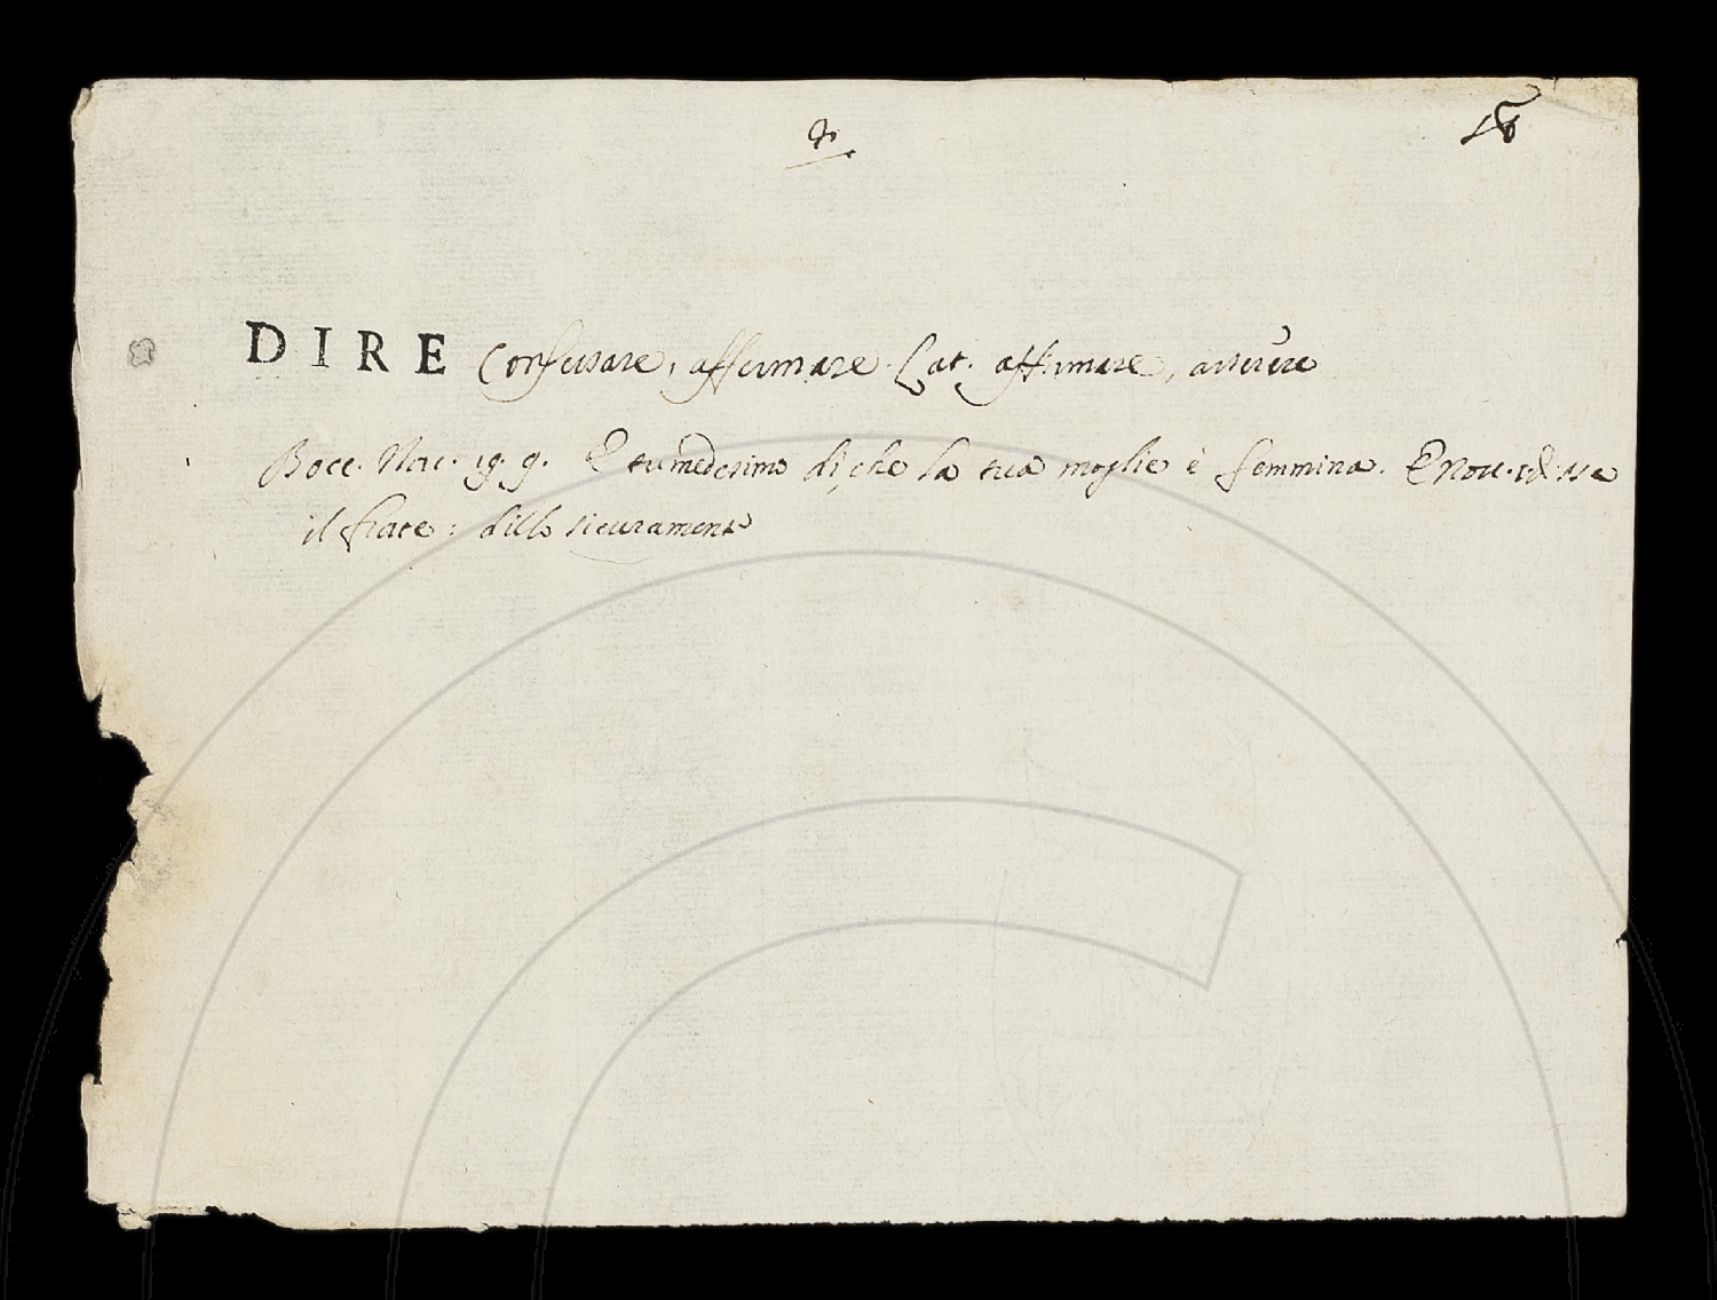 18
DIRE Confessare, affermare. Lat. affirmare, asserere
Bocc. Nov. 19. 9. E tu medesimo di, che la tua moglie è femmina. E Nov.
il frate: dillo sicuramente